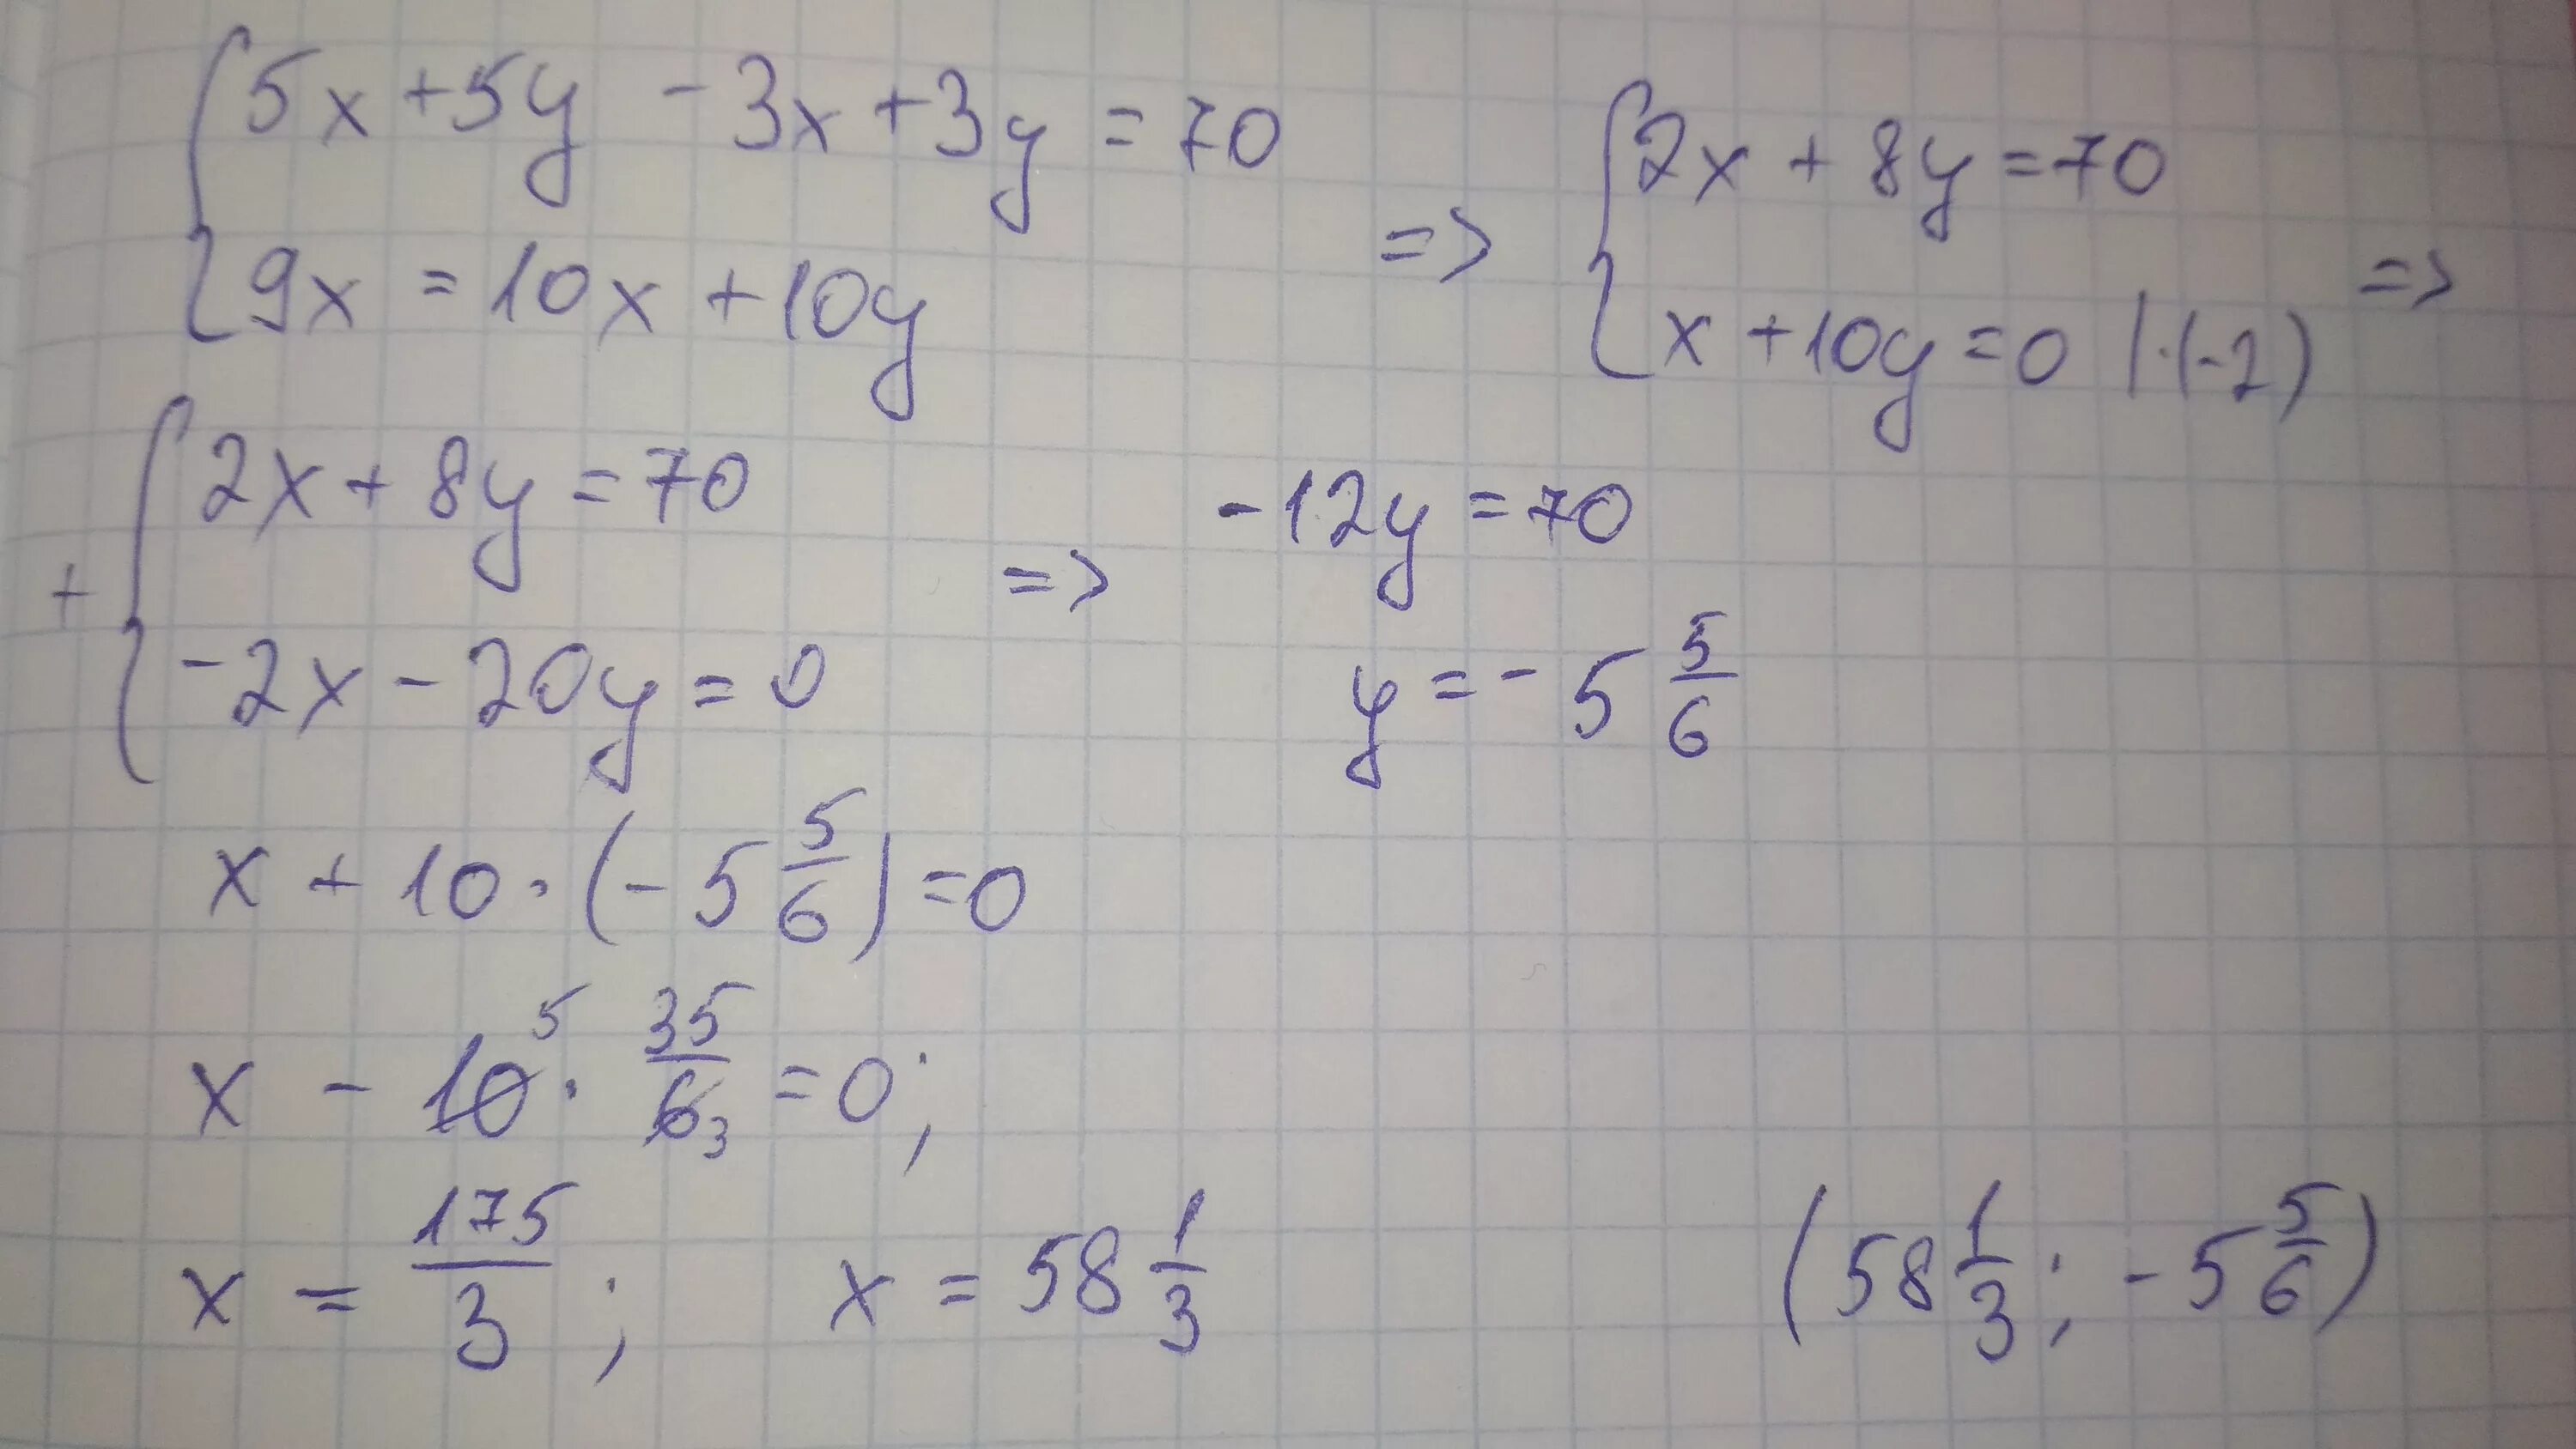 {5x + 5y - 3x + 3y = 70
{9x = 10x + 10y
=> {2x + 8y = 70
{x + 10y = 0 | · (-2) =>
+ {2x + 8y = 70
{-2x - 20y = 0
=> -12y = 70
y = - 5 5/6
x + 10 · (- 5 5/6) = 0
x - 10 5 · 35/6 3 = 0;
x = 175/3; x = 58 1/3
(58 1/3; - 5 5/6)